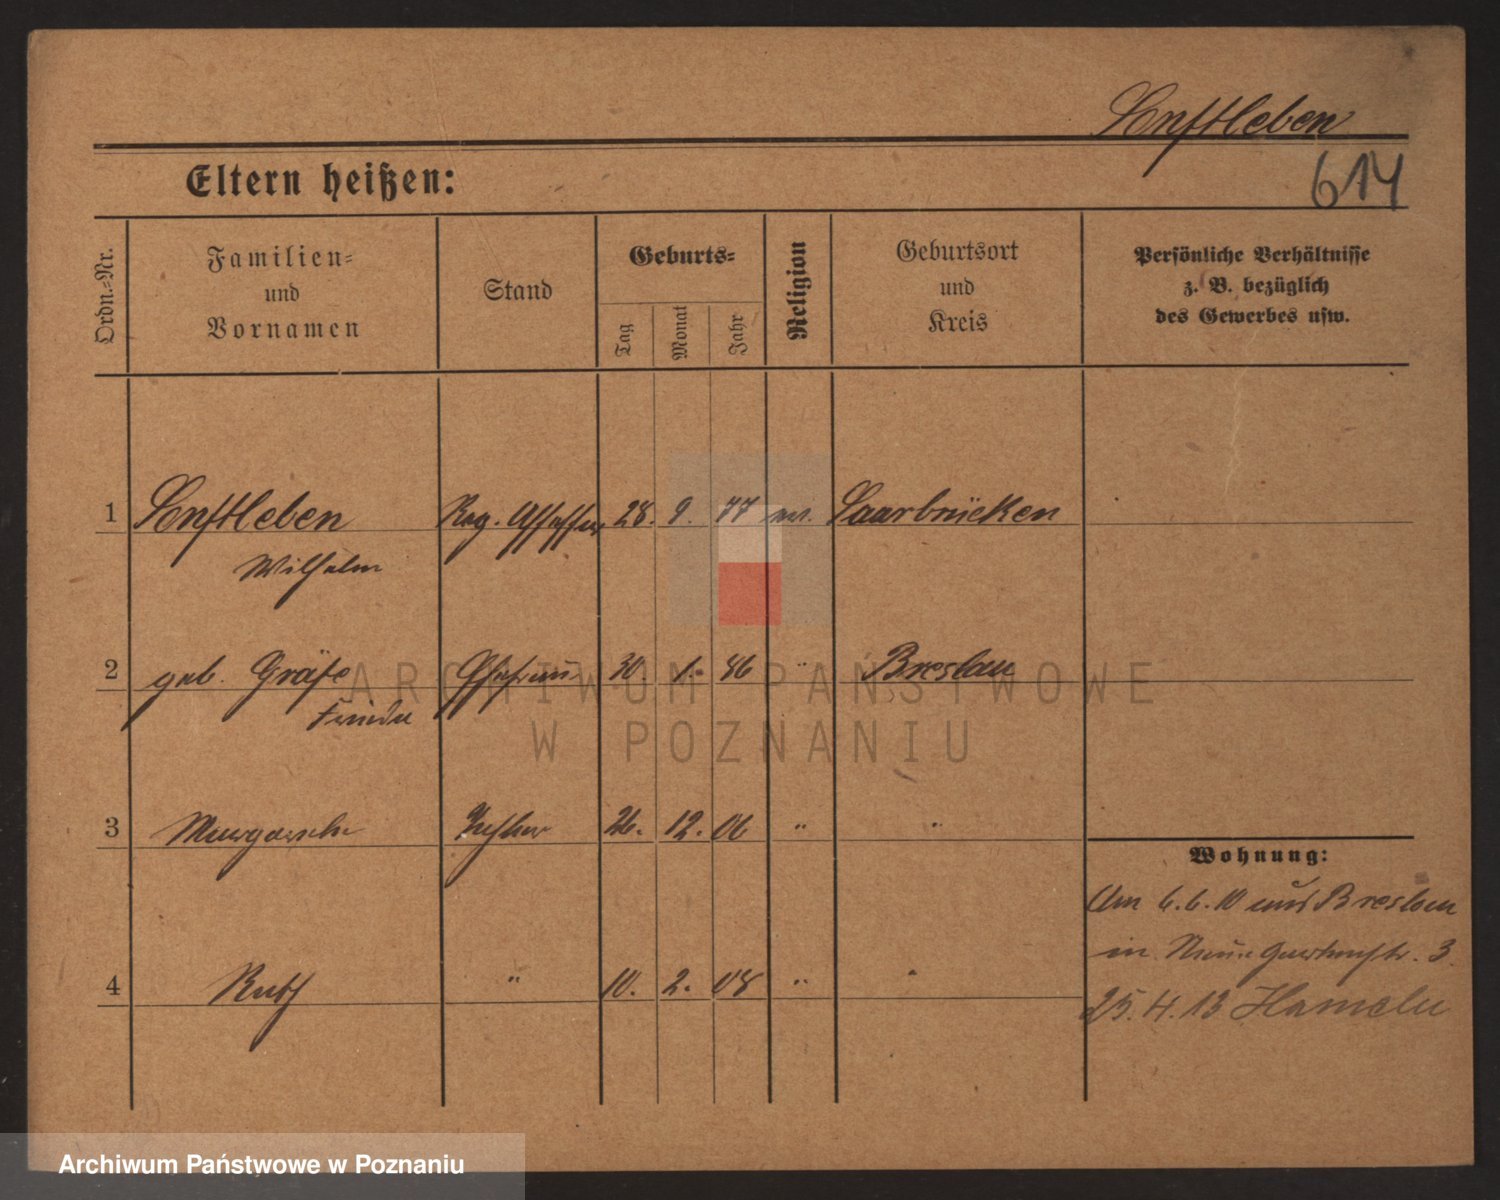 Senftleben
614
Eltern heißen:
Ordn.=Nr.
Familien=
und
Vornamen
Stand
Geburts=
Tag
Monat
Jahr
Religion
Geburtsort
und
Kreis
Persönliche Verhältnisse
z. B. bezüglich
des Gewerbes usw.
1 Senftleben Reg. Assessor 28. 9. 77 ev. Saarbrücken
Wilhelm
2 geb. Gräfe Ehefrau 30. 1. 86 " Breslau
Frieda
3 Margarethe Tochter 26. 12. 06 " "
Wohnung:
Am 6.6.10 aus Breslau
in Neue Gartenstr. 3.
4 Ruth " 10. 2. 08 " "
25.4.13 Hameln
ARCHIWUM PAŃSTWOWE
W POZNANIU
Archiwum Państwowe w Poznaniu